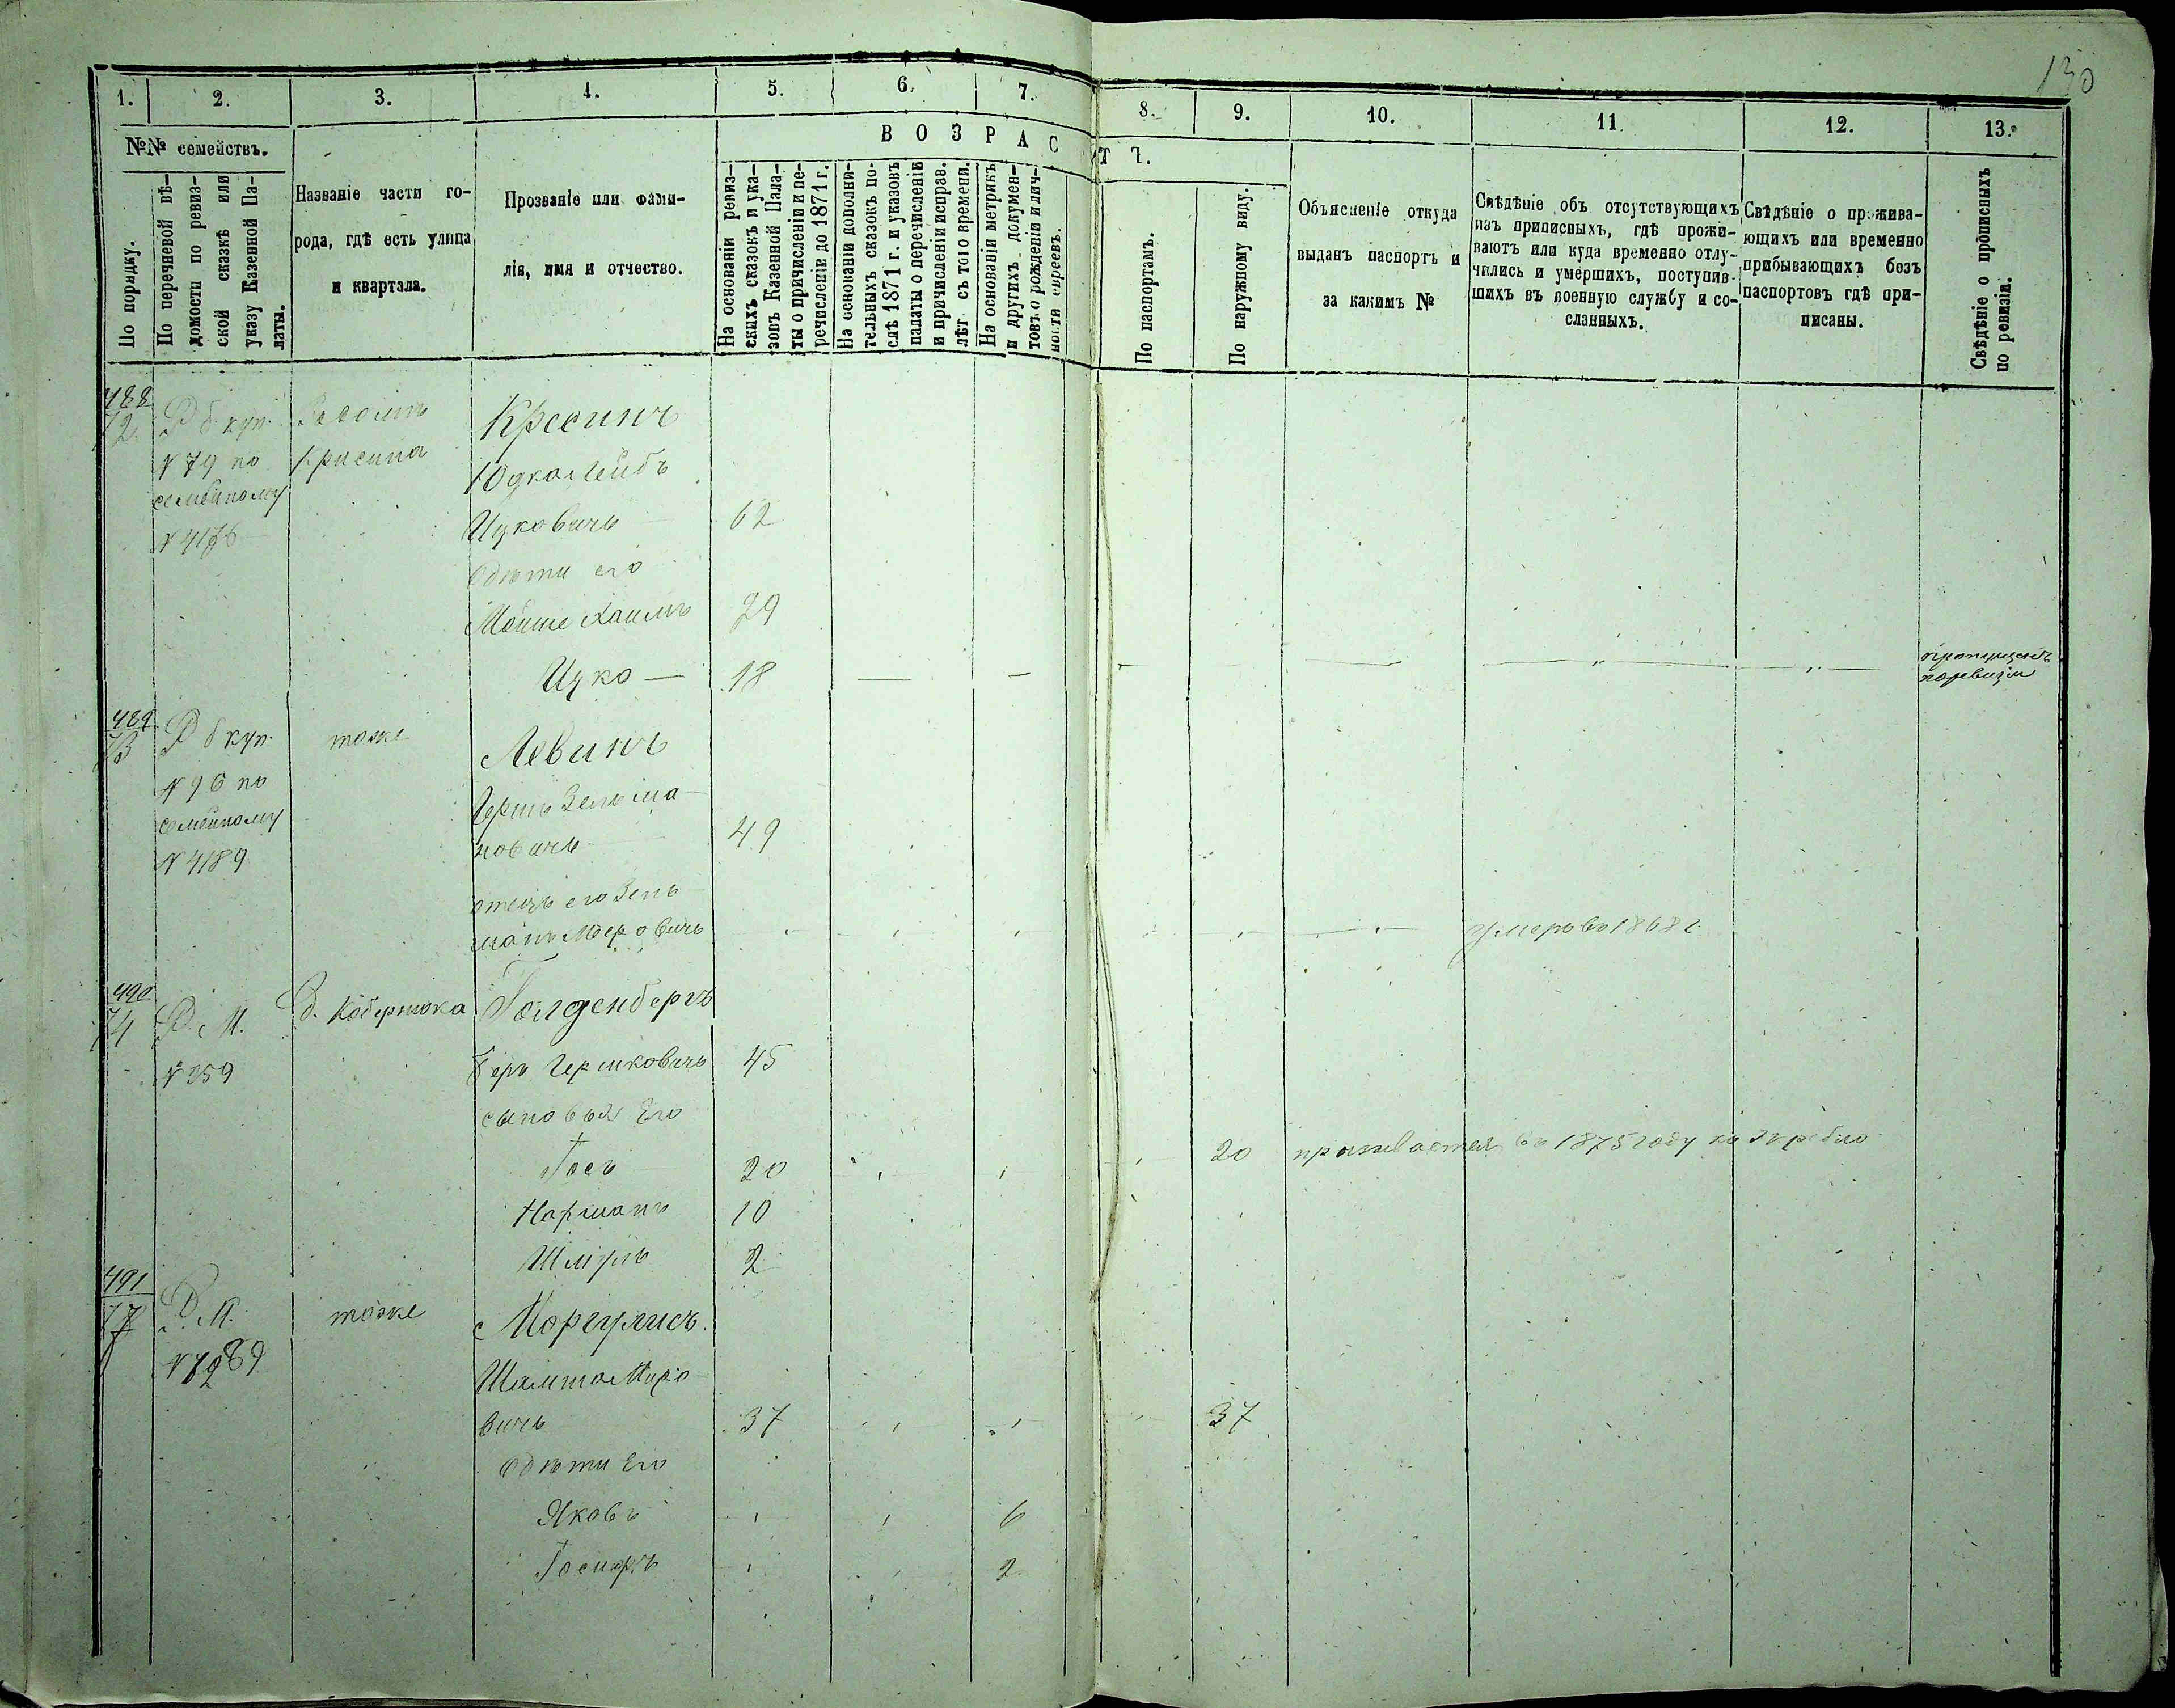 130
1. 2. 3. 4. 5. 6. 7. 8. 9. 10. 11. 12. 13.
№№ семействъ.
По порядку.
По перечневой вѣ-
домости по ревиз-
ской сказкѣ или
указу Казенной Па-
латы.
Названіе части го-
рода, гдѣ есть улица
и квартала.
Прозваніе или фами-
лія, имя и отчество.
ВОЗРАСТЪ.
На основаніи ревиз-
скихъ сказокъ и ука-
зовъ Казенной Пала-
ты о причисленіи и пе-
речисленіе до 1871 г.
На основаніи дополни-
тельныхъ сказокъ по-
слѣ 1871 г. и указовъ
палаты о перечисленіи
и причисленіи исправ.
лѣт съ того времени.
На основаніи метрикъ
и другихъ докумен-
товъ о рожденіи и лич-
ности евреевъ.
По паспортамъ.
По наружному виду.
Объясненіе откуда
выданъ паспортъ и
за какимъ №
Свѣдѣніе объ отсутствующихъ
изъ приписныхъ, гдѣ прожи-
ваютъ или куда временно отлу-
чились и умершихъ, поступив-
шихъ въ военную службу и со-
сланныхъ.
Свѣдѣніе о прожива-
ющихъ или временно
прибывающихъ безъ
паспортовъ гдѣ при-
писаны.
Свѣдѣніе о прописныхъ
по ревизіи.
488
72 Р б куп.
№ 79 по
семейному
№ 4176
Кресинъ
Юдка Лейбъ
Ицковичъ 62
дѣти его
Мойше Хаимъ 29
Ицко — 18 пропущенъ
по ревизіи
489
73 Р б куп. тоже Левинъ
№ 96 по
семейному
№ 4189
Гершъ Зельма-
новичъ 49
отецъ его Зель-
манъ Меровичъ умеръ въ 1868 г.
490
74 Р. М. Голденбергъ
№ 259 Беръ Гершковичъ 45
сыновья Его
Іосъ 20 20 въ 1875 году
10
Шмуль 2
491
77 Р. М. тоже Моргулисъ.
№ 7289
вичъ 37 37
дѣти Его
Яковъ 6
2